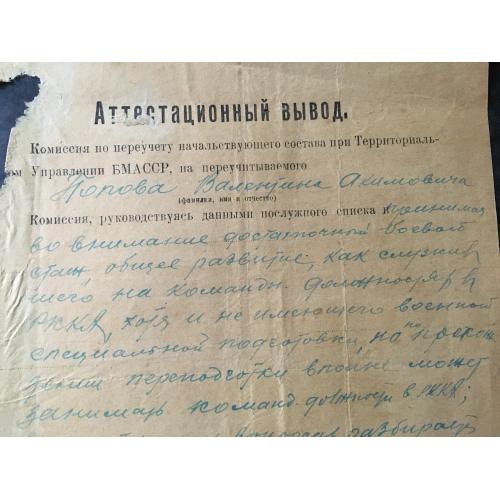 Аттестационный вывод.
Комиссия по переучету начальствующего состава при Территориаль-
ом Управлении БМАССР, на переучитываемого
Попова Валентина Акимовича
(фамилия, имя и отчество)
Комиссия, руководствуясь данными послужного списка и принимая
во внимание достаточный боевой
стаж, общее развитие, как служив
шего на командн. должностях в
РККА, хотя и не имеющего военной
специальной подготовки, но по прохож
дении переподготки вполне может
занимать команд. должности в РККА;
разбирает